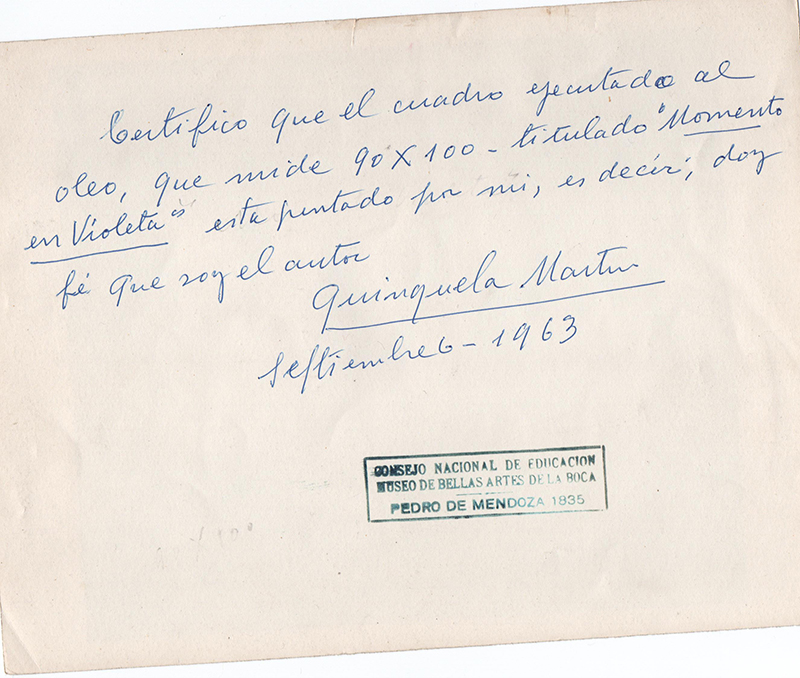 Certifico que el cuadro ejecutado al
oleo, que mide 90X100 - titulado "Momento
en Violeta" esta pintado por mi, es decir; doy
fé que soy el autor
Quinquela Martin
Septiembre 6 - 1963
CONSEJO NACIONAL DE EDUCACION
MUSEO DE BELLAS ARTES DE LA BOCA
PEDRO DE MENDOZA 1835